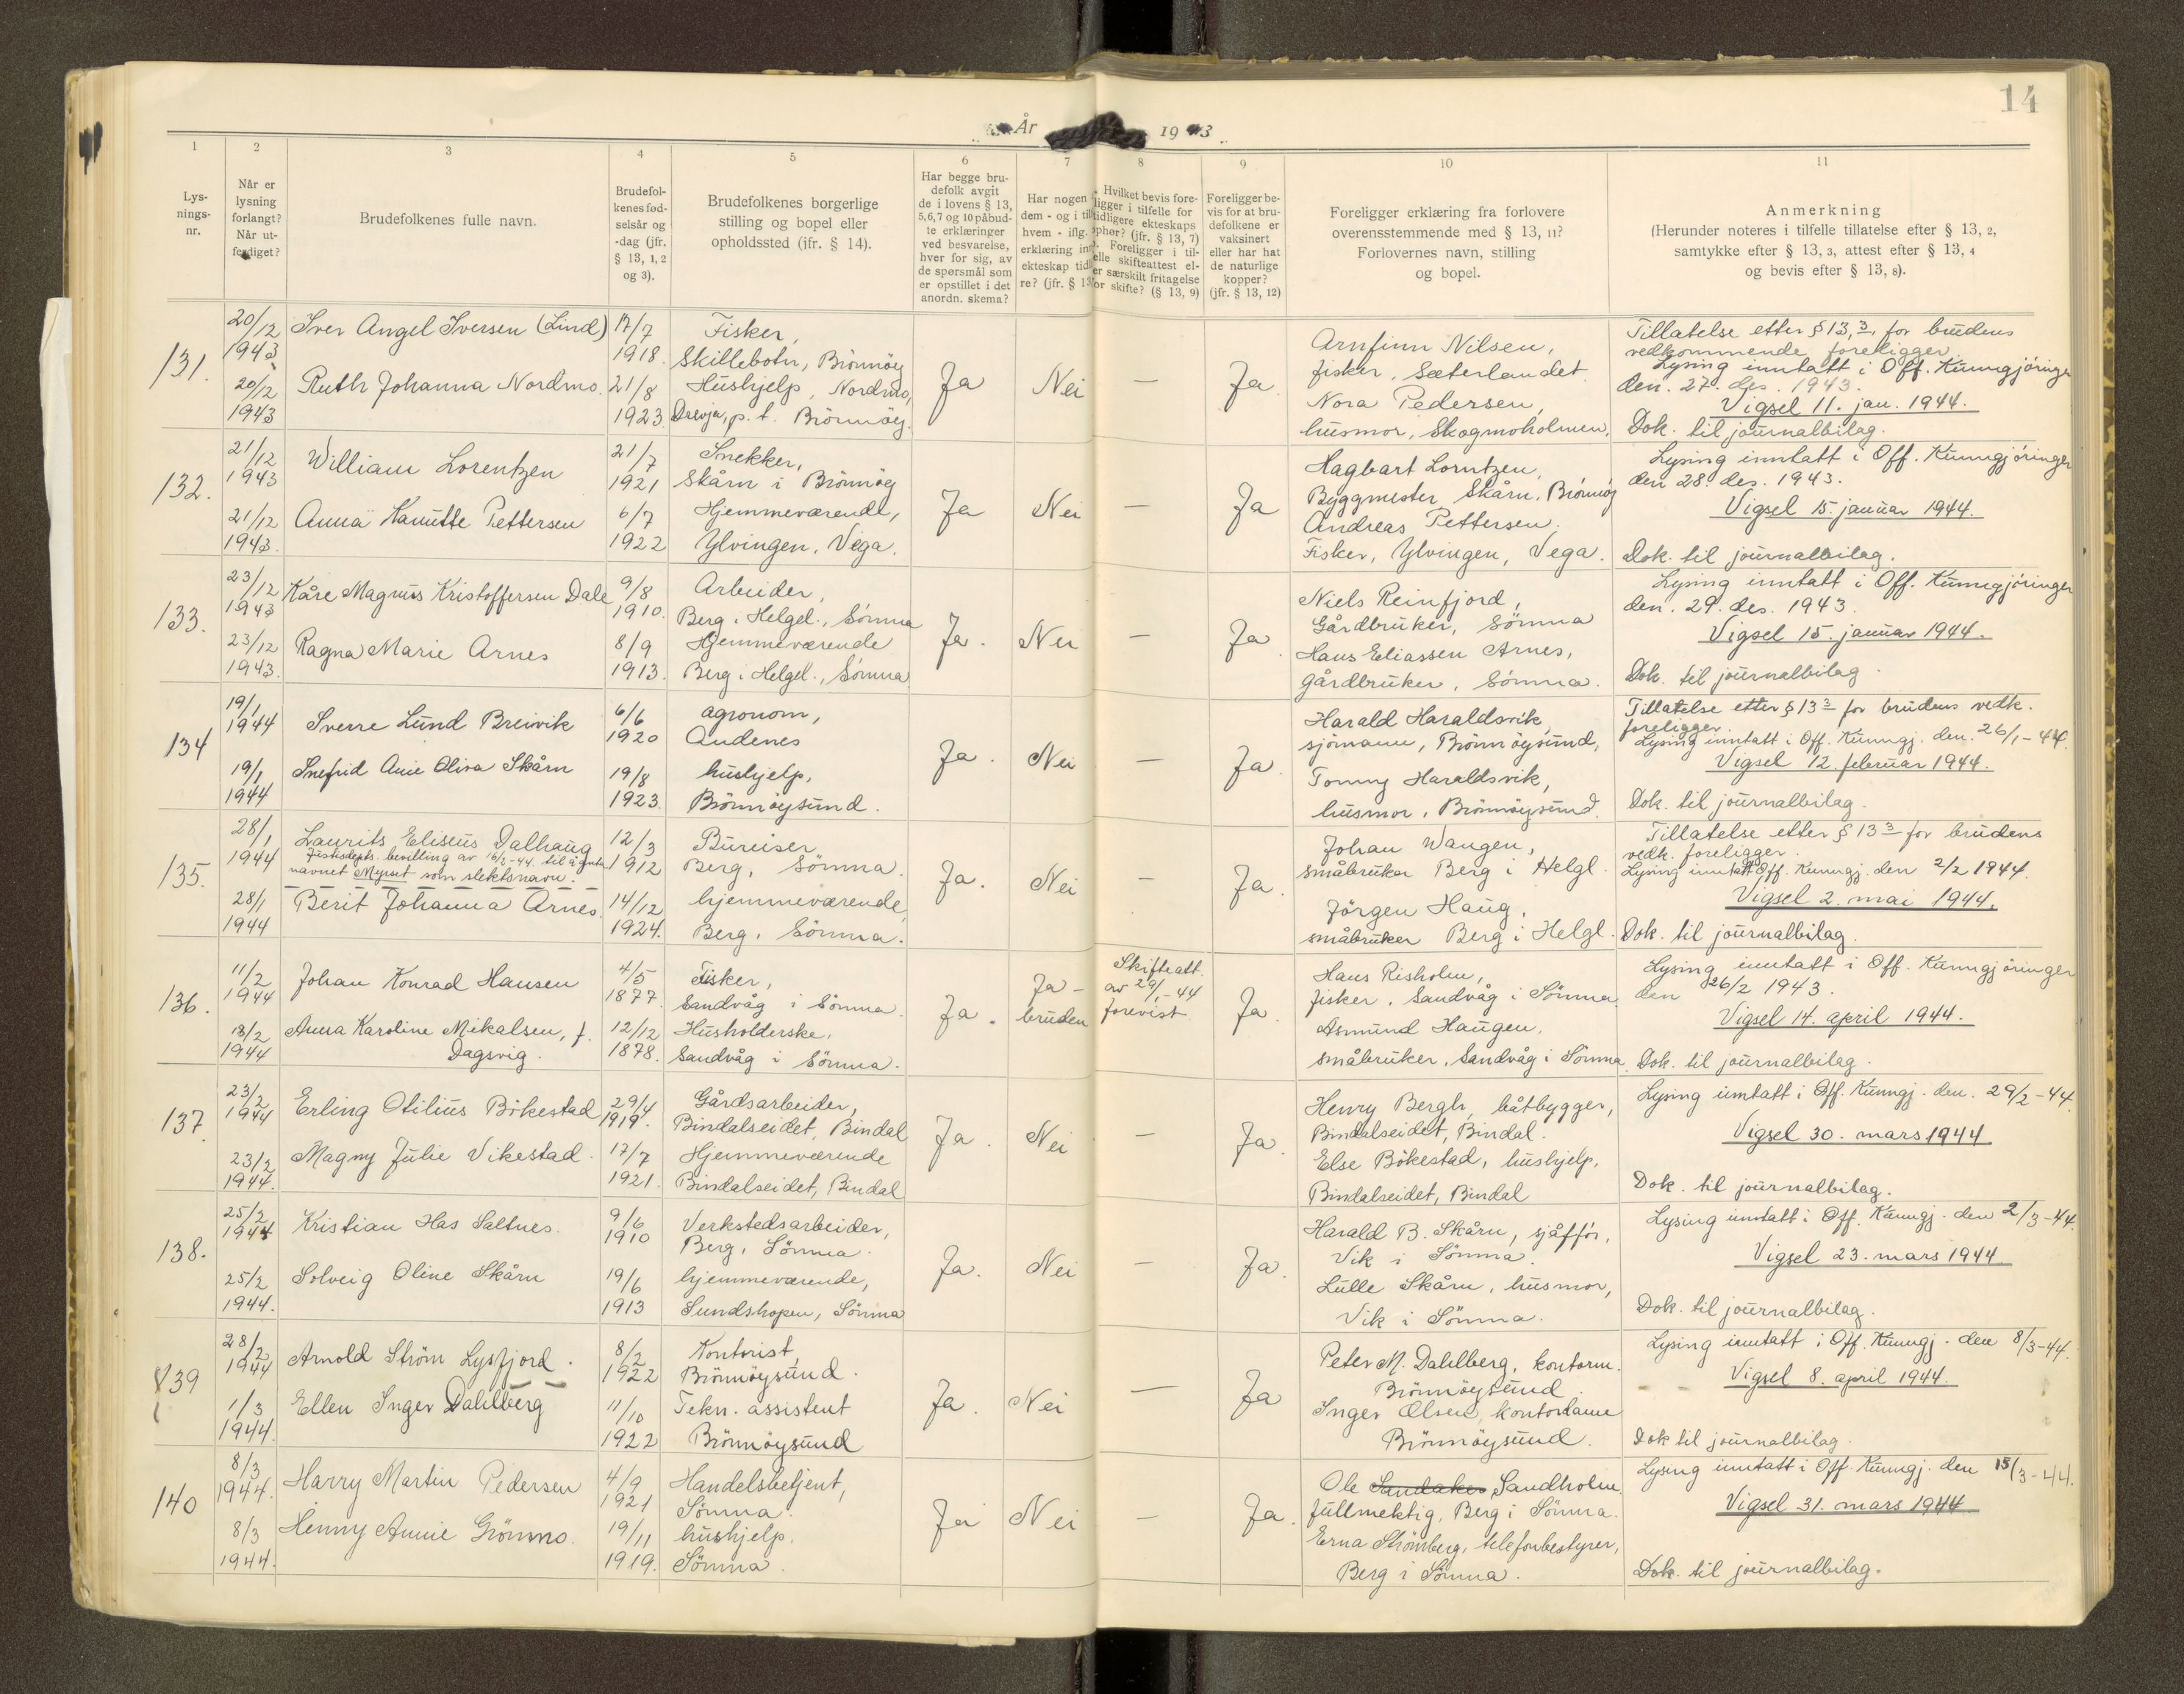 14
År 1943
1
2
3
4
5
6
7
8
9
10
11
Lys-
nings-
nr.
Når er
lysning
forlangt?
Når ut-
ferdiget?
Brudefolkenes fulle navn.
Brudefol-
kenes fød-
selsår og
-dag (jfr.
§ 13, 1, 2
og 3).
Brudefolkenes borgerlige
stilling og bopel eller
opholdssted (ifr. § 14).
Har begge bru-
defolk avgit
de i lovens § 13,
5,6,7 og 10 påbud-
te erklæringer
ved besvarelse,
hver for sig, av
de spørsmål som
er opstillet i det
anordn. skema?
Har nogen
dem - og i til
hvem - iflg.
erklæring in
ekteskap tid
re? (jfr. § 13
Hvilket bevis fore-
ligger i tilfelle for
tidligere ekteskaps
ophør? (jfr. § 13, 7)
Foreligger i til-
elle skifteattest el-
er særskilt fritagelse
for skifte? (§ 13, 9)
Foreligger be-
vis for at bru-
defolkene er
vaksinert
eller har hat
de naturlige
kopper?
(jfr. § 13, 12)
Foreligger erklæring fra forlovere
overensstemmende med § 13, 11?
Forlovernes navn, stilling
og bopel.
Anmerkning
(Herunder noteres i tilfelle tillatelse efter § 13, 2,
samtykke efter § 13, 3, attest efter § 13, 4
og bevis efter § 13, 8).
131.
20/12
1943
Iver Angel Iversen (Lind)
17/7
1918.
Fisker,
Skillebotn, Brönnöy
20/12
1943
Ruth Johanna Nordmo.
21/8
1923.
Hushjelp, Nordmo,
Drevja, p.t. Brönnöy.
Ja
Nei
—
Ja.
Arnfinn Nilsen,
fisker, Sæterlandet
Nora Pedersen,
husmor, Skogmoholmen.
Tillatelse etter § 13,3, for brudens
vedkommende foreligger.
Lysing inntatt i Off. Kunngjöringer
den. 27. des. 1943.
Vigsel 11. jan. 1944.
Dok. til journalbilag.
132.
21/12
1943
William Lorentzen
21/7
1921
Snekker,
Skårn i Brönnöy
21/12
1943.
Anna Hanutte Pettersen
6/7
1922
Hjemmeværende,
Ylvingen, Vega.
Ja
Nei
—
Ja
Hagbart Lorntzen,
Byggmester, Skårn, Brönnöy
Andreas Pettersen.
Fisker, Ylvingen, Vega.
Lysing inntatt i Off. Kunngjöringer
den 28. des. 1943.
Vigsel 15. januar 1944.
Dok. til journalbilag.
133.
23/12
1943
Kåre Magnus Kristoffersen Dale
9/8
1910.
Arbeider,
Berg i Helgel., Sömna
23/12
1943.
Ragna Marie Arnes
8/9
1913.
Hjemmeværende
Berg i Helgel., Sömna
Ja.
Nei
—
Ja.
Niels Reinfjord,
Gårdbruker, Sömna
Hans Eliassen Arnes,
gårdbruker, Sömna.
Lysing inntatt i Off. Kunngjöringer
den. 29. des. 1943.
Vigsel 15. januar 1944.
Dok. til journalbilag.
134
19/1
1944
Sverre Lund Breivik
6/6
1920
agronom,
Andenes
19/1
1944
Snefrid Anie Oliva Skårn
19/8
1923.
hushjelp,
Brönnöysund.
Ja.
Nei
—
Ja.
Harald Haraldsvik,
sjömann, Brönnöysund,
Tonny Haraldsvik,
husmor, Brönnöysund.
Tillatelse etter § 13 3 for brudens vedk.
foreligger.
Lysing inntatt i Off. Kunngj. den. 26/1-44.
Vigsel 12. februar 1944.
Dok. til journalbilag.
135.
28/1
1944
Laurits Eliseus Dalhaug
Justisdepts. bevilling av 16/2-44 til å anta
navnet Myrset som slektsnavn.
12/3
1912
Bureiser
Berg, Sömna.
28/1
1944
Berit Johanna Arnes.
14/12
1924.
hjemmeværende,
Berg, Sömna.
Ja.
Nei
—
Ja.
Johan Wangen,
småbruker Berg i Helgl.
Jörgen Haug,
småbruker Berg i Helgl.
Tillatelse etter § 13 3 for brudens
vedk. foreligger.
Lysing inntatt Off. Kunngj. den 2/2 1944.
Vigsel 2. mai 1944.
Dok. til journalbilag.
136.
11/2
1944
Johan Konrad Hansen
4/5
1877.
Fisker,
Sandvåg i Sömna.
18/2
1944
Anna Karoline Mikalsen, f.
Dagsvig.
12/12
1878.
Husholderske,
Sandvåg i Sömna.
Ja.
Ja -
bruden
Skifteatt.
av 29/1-44
forevist
Ja.
Hans Risholm,
fisker, Sandvåg i Sömna
Asmund Haugen,
småbruker, Sandvåg i Sömna.
Lysing inntatt i Off. Kunngjöringer
den 26/2 1943.
Vigsel 14. april 1944.
Dok. til journalbilag.
137.
23/2
1944
Erling Otilius Bökestad
29/4
1919.
Gårdsarbeider,
Bindalseidet, Bindal
23/2
1944.
Magny Julie Vikestad.
17/7
1921.
Hjemmeværende
Bindalseidet, Bindal
Ja.
Nei
—
Ja.
Henry Bergh, båtbygger,
Bindalseidet, Bindal.
Else Bökestad, hushjelp,
Bindalseidet, Bindal
Lysing inntatt i Off. Kunngj. den. 29/2-44.
Vigsel 30. mars 1944.
Dok. til journalbilag.
138.
25/2
1944
Kristian Has Saltnes.
9/6
1910
Verkstedsarbeider,
Berg, Sömna.
25/2
1944.
Solveig Oline Skårn
19/6
1913
hjemmeværende,
Sundshopen, Sömna
Ja.
Nei
—
Ja.
Harald B. Skårn, sjåffør,
Vik i Sömna.
Lulle Skårn, husmor,
Vik i Sömna.
Lysing inntatt i Off. Kunngj. den 2/3-44.
Vigsel 23. mars 1944.
Dok. til journalbilag.
139
28/2
1944
Arnold Ström Lysfjord.
8/2
1922
Kontorist,
Brönnöysund.
1/3
1944.
Ellen Inger Dahlberg
11/10
1922
Tekn. assistent
Brönnöysund
Ja.
Nei
—
Ja
Peter M. Dahlberg, kontorm.
Brönnöysund.
Inger Olsen, kontordame
Brönnöysund.
Lysing inntatt i Off. Kunngj. den 8/3-44.
Vigsel 8. april 1944.
Dok til journalbilag.
140
8/3
1944.
Harry Martin Pedersen
4/9
1921
Handelsbetjent,
Sömna.
8/3
1944.
Henny Annie Grönmo.
19/11
1919.
hushjelp,
Sömna.
Ja
Nei
—
Ja.
Ole Sandaker Sandholm.
fullmektig, Berg i Sömna.
Erna Strömberg, telefonbestyrer,
Berg i Sömna.
Lysing inntatt i Off. Kunngj. den 15/3-44.
Vigsel 31. mars 1944
Dok. til journalbilag.